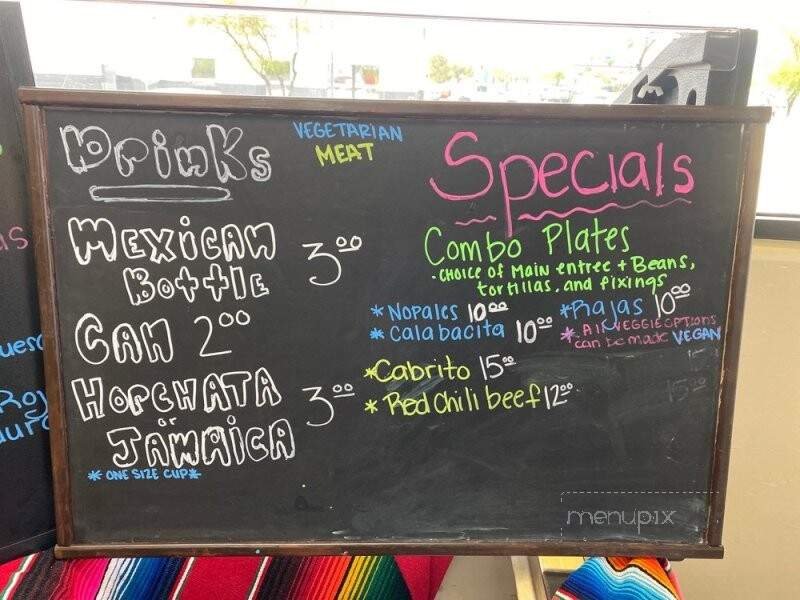 Drinks
VEGETARIAN
MEAT
MEXiCAN
BottlE
3.00
CAN 2.00
HORCHATA
or
JAMAiCA
3.00
* ONE SIZE CUP *
Specials
Combo Plates
- CHOICE OF MAIN entree + BEANS,
tortillas, and fixings
* Nopales 10.00
* Calabacita 10.00
* Rajas 10.00
* All VEGGIE OPTIONS
can be made VEGAN
* Cabrito 15.00
* Red Chili beef 12.00
menupix